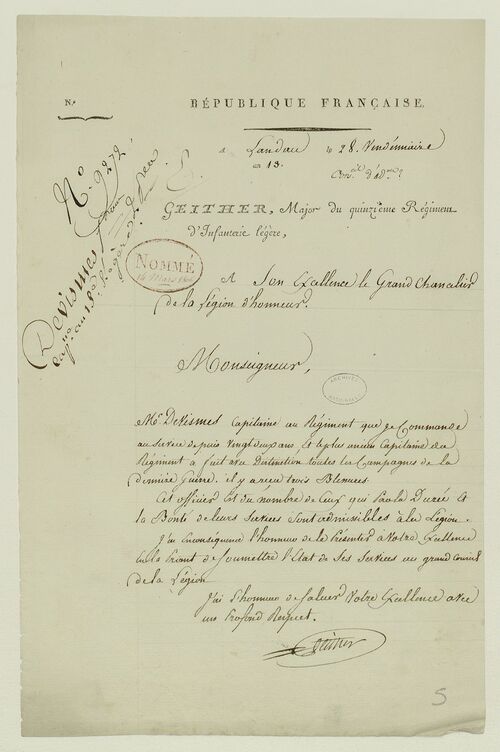 N.º
RÉPUBLIQUE FRANÇAISE.
A Landau le 28. Vendémiaire
an 13.
Con.el d'ad.on
N.º 9272.
Devismes
Cap.ne au 15.e Léger
NOMMÉ
14 Mars 1806
GEITHER, Major du quinzième Régiment
d'Infanterie légère,
A Son Excellence le Grand Chancelier
de la Légion d'honneur.
Monseigneur,
ARCHIVES
NATIONALES
Mr. Devismes Capitaine au Régiment que je Commande
au service depuis vingt deux ans, et le plus ancien Capitaine du
Régiment a fait avec Distinction toutes les Campagnes de la
dernière Guerre. il y a reçu trois Blessures.
Cet officier Est du nombre de Ceux qui Par la Durée et
la Bonté de leurs Services Sont admissibles à la Légion.
J'ai En conséquence l'honneur de le Présenter à Votre Excellence
En la Priant de Soumettre l'Etat de Ses Services au grand Conseil
de la Légion
J'ai l'honneur de Saluer Votre Excellence avec
un Profond Respect.
Geither
S